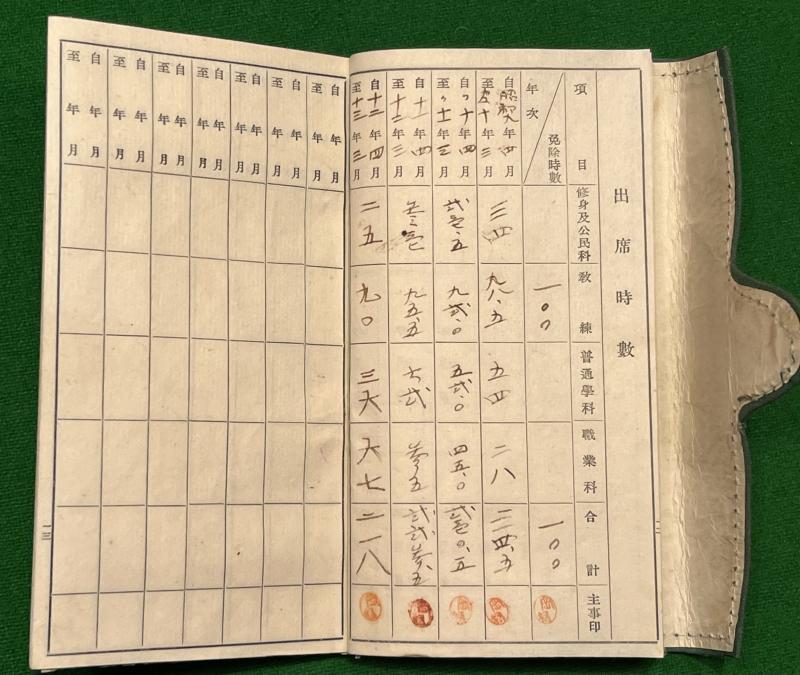 出席時數
項目
修身及公民科
教練
普通學科
職業科
合計
主事印
免除時數
年次
一〇〇
一〇〇
自昭和九年四月
至〃十年三月
三四
九八.五
五四
二八
二一四.五
自〃十年四月
至〃十一年三月
弐壱.五
九弐.〇
五弐.〇
四五.〇
弐壱〇.五
自十一年四月
至十二年三月
参壱
九五.五
六弐
参五
弐弐参.五
自十二年四月
至十三年三月
二五
九〇
三六
六七
二一八
自年月
至年月
自年月
至年月
自年月
至年月
自年月
至年月
自年月
至年月
自年月
至年月
自年月
至年月
一三